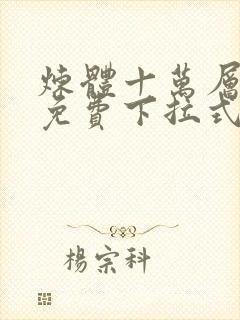 煉體十萬層
免費下拉式
楊宗科